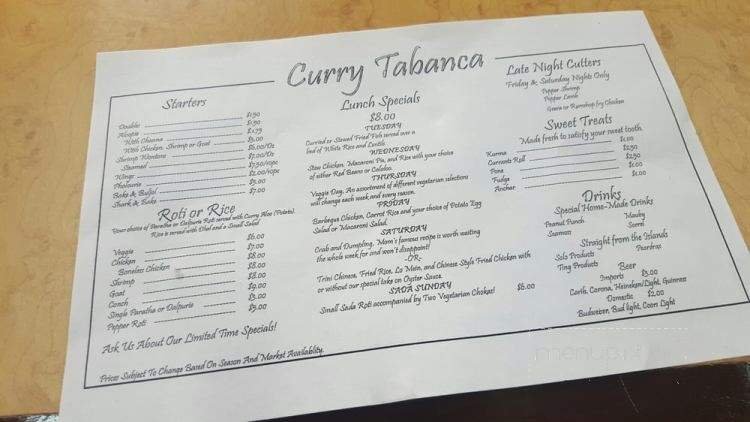 Curry Tabanca
Starters
Doubles $1.50
Aloopie $1.50
With Channa $1.75
With Chicken, Shrimp or Goat $3.00
Shrimp Wontons $6.00/Dz
Steamed $7.00/Dz
Wings
Pholourie $2.00/dozen
Bake & Buljol $5.00
Shark & Bake $7.00
Roti or Rice
Your choice of Paratha or Dalpurie Roti served with Curry Aloo (Potato).
Rice is served with Dhal and a Small Salad
Veggie $6.00
Chicken $7.00
Boneless Chicken $8.00
Shrimp $8.00
Goat $8.00
Conch $9.00
Single Paratha or Dalpurie $3.00
Pepper Roti $5.00
Ask Us About Our Limited Time Specials!
Prices Subject To Change Based On Season And Market Availability.
Lunch Specials
$8.00
TUESDAY
Curried or Stewed Fried Fish served over a
bed of White Rice and Lentils.
WEDNESDAY
Stew Chicken, Macaroni Pie, and Rice with your choice
of either Red Beans or Callaloo.
THURSDAY
Veggie Day. An assortment of different vegetarian selections
will change each week and every season.
FRIDAY
Barbeque Chicken, Carrot Rice and your choice of Potato Egg
Salad or Macaroni Salad.
SATURDAY
Crab and Dumpling. Mom's famous recipe is worth waiting
the whole week for and won't disappoint!
-OR-
Trini Chinese, Fried Rice, Lo Mein, and Chinese Style Fried Chicken with
or without our special take on Oyster Sauce.
SADA SUNDAY
Small Sada Roti accompanied by Two Vegetarian Chokas! $6.00
Late Night Cutters
Friday & Saturday Nights Only
Pepper Shrimp
Pepper Lamb
Geera or Rumshop Fry Chicken
Sweet Treats
Made fresh to satisfy your sweet tooth.
Kurma $1.00
Currants Roll $2.50
Pone $2.50
Fudge $1.00
Anchar $1.00
Drinks
Special Home-Made Drinks
Peanut Punch Mauby
Seamoss Sorrel
Straight from the Islands
Solo Products Peardrax
Ting Products
Beer
Imports $3.00
Carib, Corona, Heineken/Light, Guinness
Domestic $2.00
Budweiser, Bud light, Coors Light
menupix